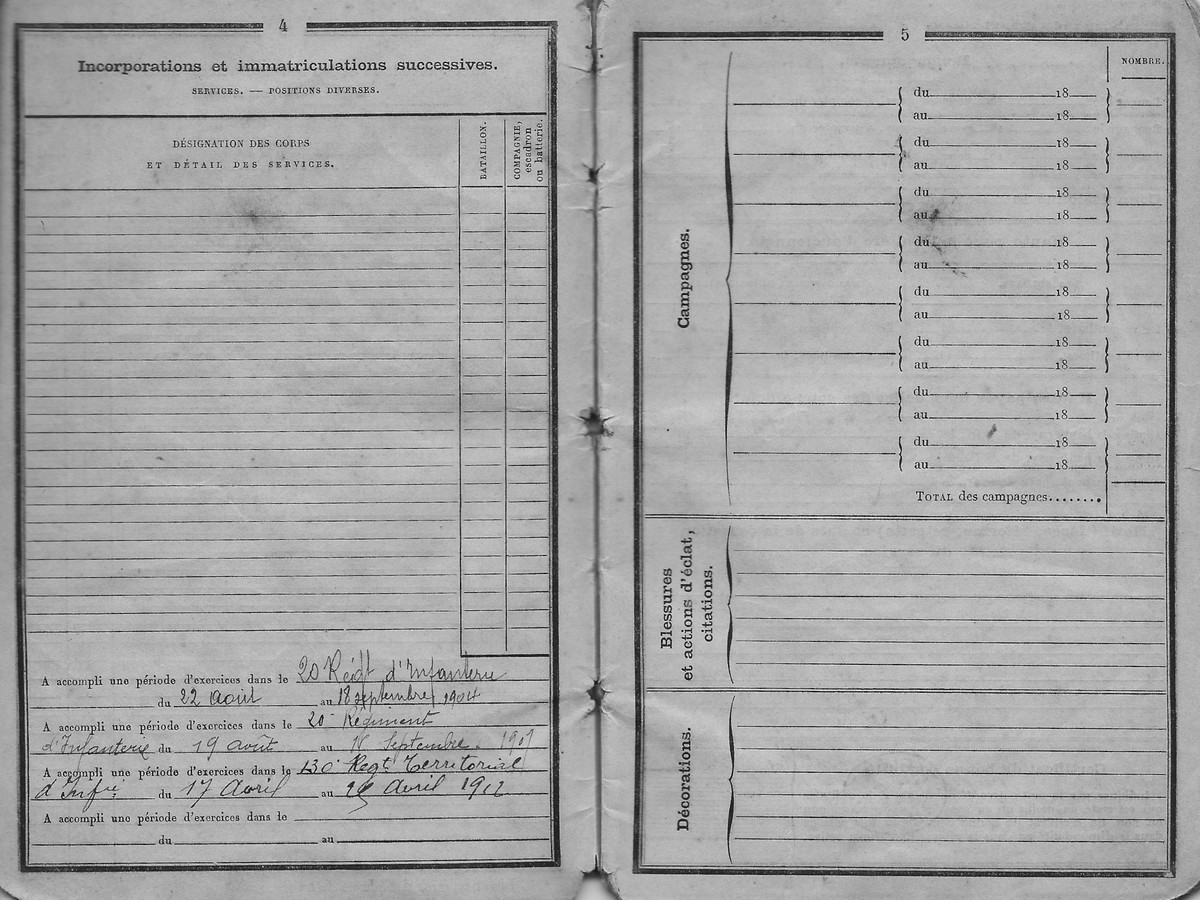 4
Incorporations et immatriculations successives.
SERVICES. — POSITIONS DIVERSES.
DÉSIGNATION DES CORPS
ET DÉTAIL DES SERVICES.
BATAILLON.
COMPAGNIE,
escadron
ou batterie.
A accompli une période d'exercices dans le 20 Régt d'Infanterie
du 22 Août au 18 septembre 1904
A accompli une période d'exercices dans le 20e Régiment
d'Infanterie du 19 août au Septembre 1907
A accompli une période d'exercices dans le 130e Regt Territorial
d'Infrie du 17 Avril au Avril 1912
A accompli une période d'exercices dans le
du au
5
NOMBRE.
Campagnes.
du 18
au 18
du 18
au 18
du 18
au 18
du 18
au 18
du 18
au 18
du 18
au 18
du 18
au 18
du 18
au 18
TOTAL des campagnes........
Blessures
et actions d'éclat,
citations.
Décorations.